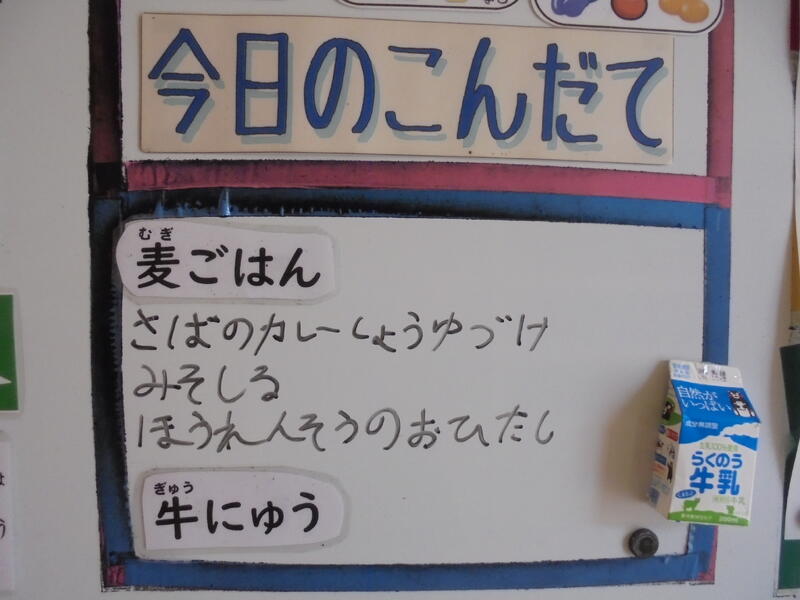 今日のこんだて
むぎ
麦ごはん
さばのカレーしょうゆづけ
みそしる
ほうれんそうのおひたし
ぎゅう
牛にゅう
自然が
いっぱい
成分無調整
らくのう
牛乳
200ml